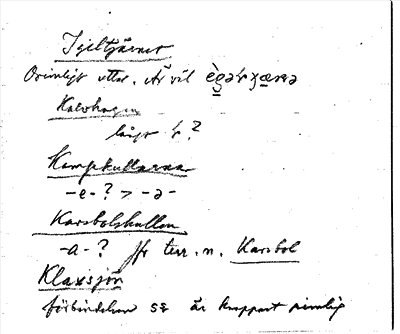 Igeltjärnet
Orimligt uttal. Är väl ègər
Kalvhagen
långt ?
Kampkullarna
-e- ? > -ə-
Karsbolskullen
-a- ? Jfr terr. n. Karsbol
Klaxsjön
förbindelsen sɛ är knappast rimlig